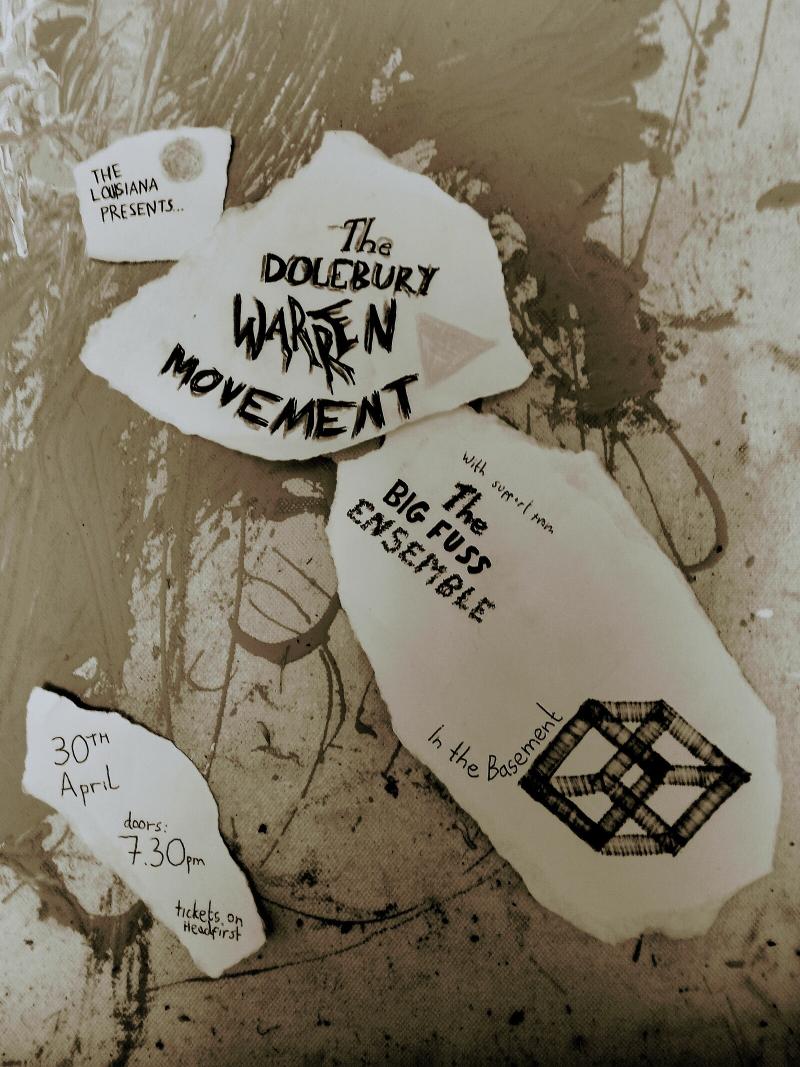 THE
LOUISIANA
PRESENTS...
The
DOLEBURY
WARREN
MOVEMENT
With support from
The
BIG FUSS
ENSEMBLE
In the Basement
30TH
April
doors:
7.30pm
tickets on
Headfirst